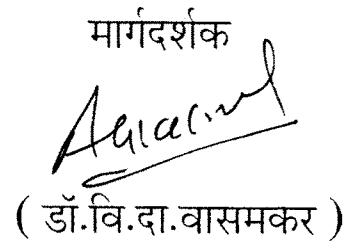 मार्गदर्शक
( डॉ.वि.दा.वासमकर )